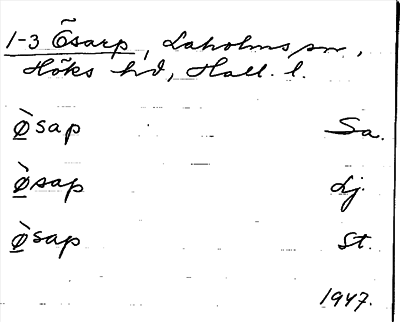 1-3 Õsarp, Laholms sn,
Höks hd, Hall. l.
ø̱̀sap Sa.
ø̱̀sap Lj.
ø̱̀sap St.
1947.